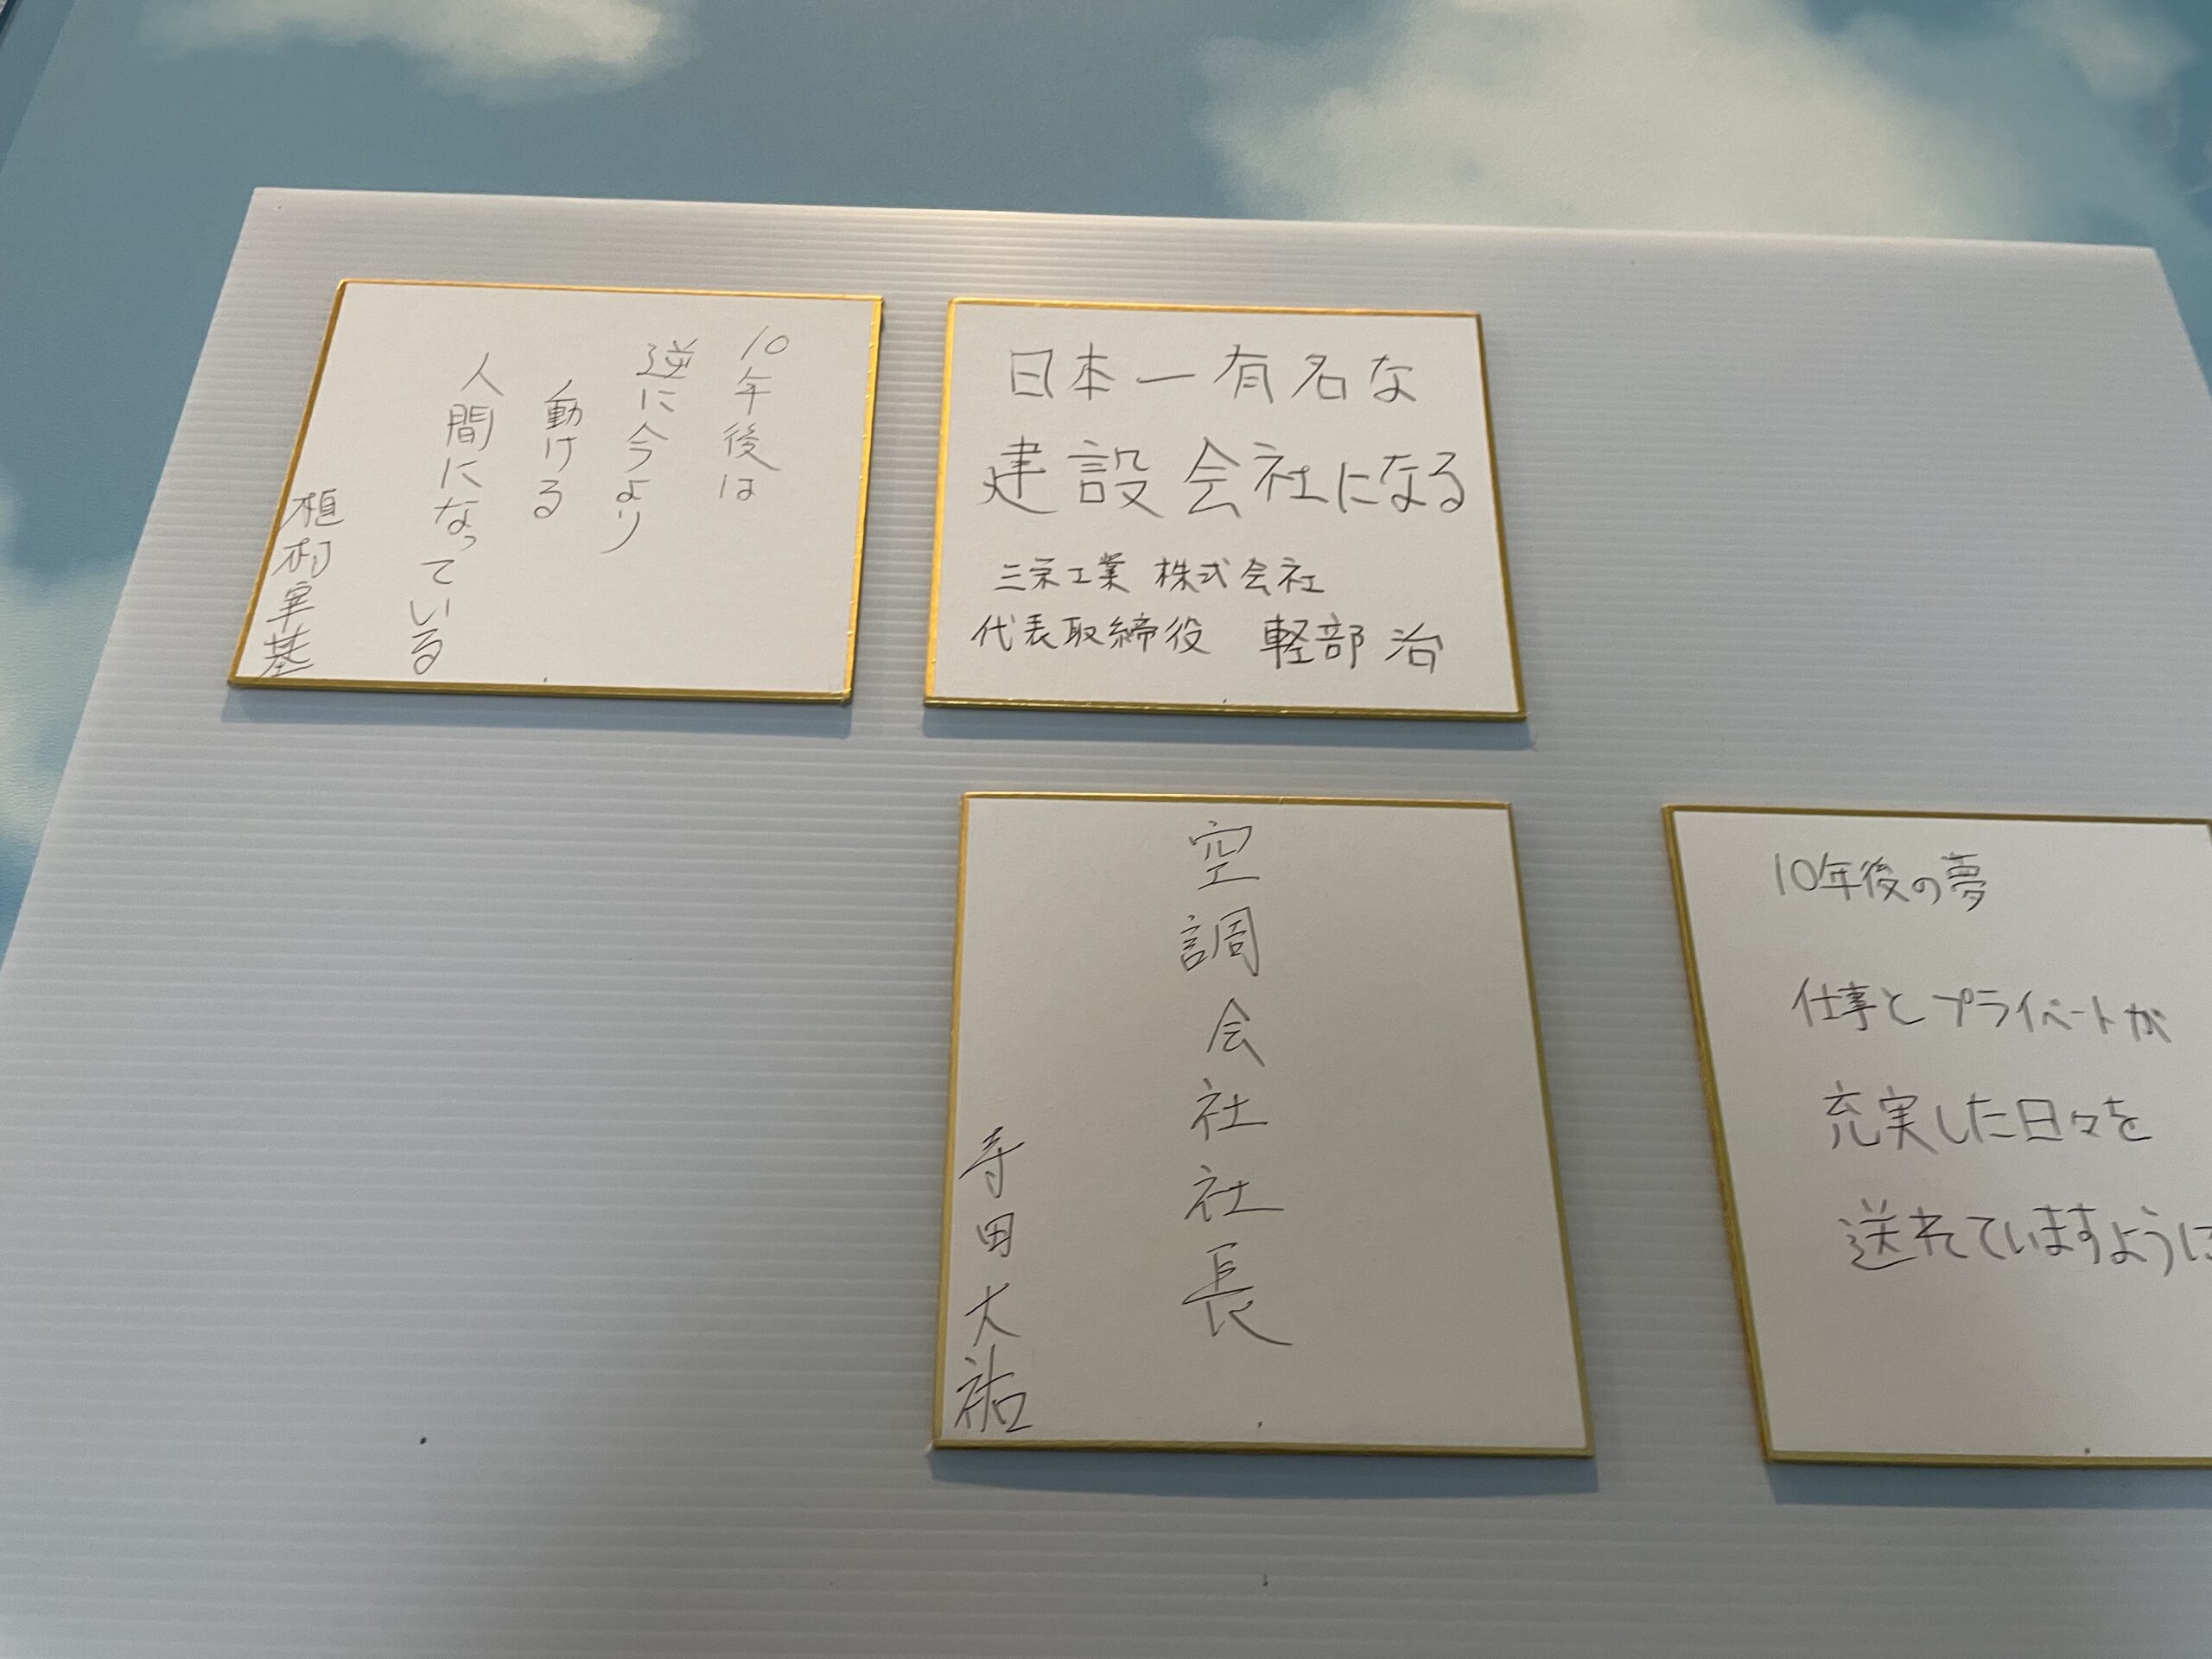 10年後は
逆に今より
動ける
人間になっている
植村宰基
日本一有名な
建設会社になる
三栄工業 株式会社
代表取締役 軽部 治
空調会社社長
寺田大祐
10年後の夢
仕事とプライベートが
充実した日々を
送れていますように